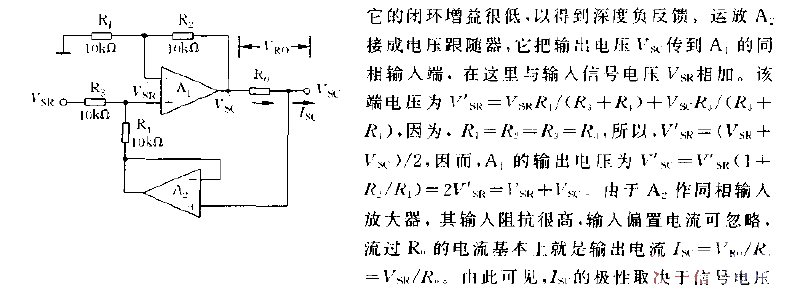 R₁
R₂
10kΩ
10kΩ
V_RO
R₀
A₁
V_SR
R₃
V'_SR
V'_SC
V_SC
I_SC
10kΩ
R₄
10kΩ
A₂
它的闭环增益很低,以得到深度负反馈，运放 A₂
接成电压跟随器,它把输出电压 V_SC 传到 A₁ 的同
相输入端，在这里与输入信号电压 V_SR 相加。该
端电压为 V'_SR=V_SR R₄/(R₃+R₄)+V_SC R₃/(R₃+
R₄),因为, R₁=R₂=R₃=R₄,所以, V'_SR=(V_SR+
V_SC)/2,因而,A₁ 的输出电压为 V'_SC=V'_SR(1+
R₂/R₁)=2V'_SR=V_SR+V_SC。由于 A₂ 作同相输入
放大器，其输入阻抗很高,输入偏置电流可忽略,
流过 R₀ 的电流基本上就是输出电流 I_SC=V_RO/R₀
=V_SR/R₀。由此可见,I_SC的极性取决于信号电压